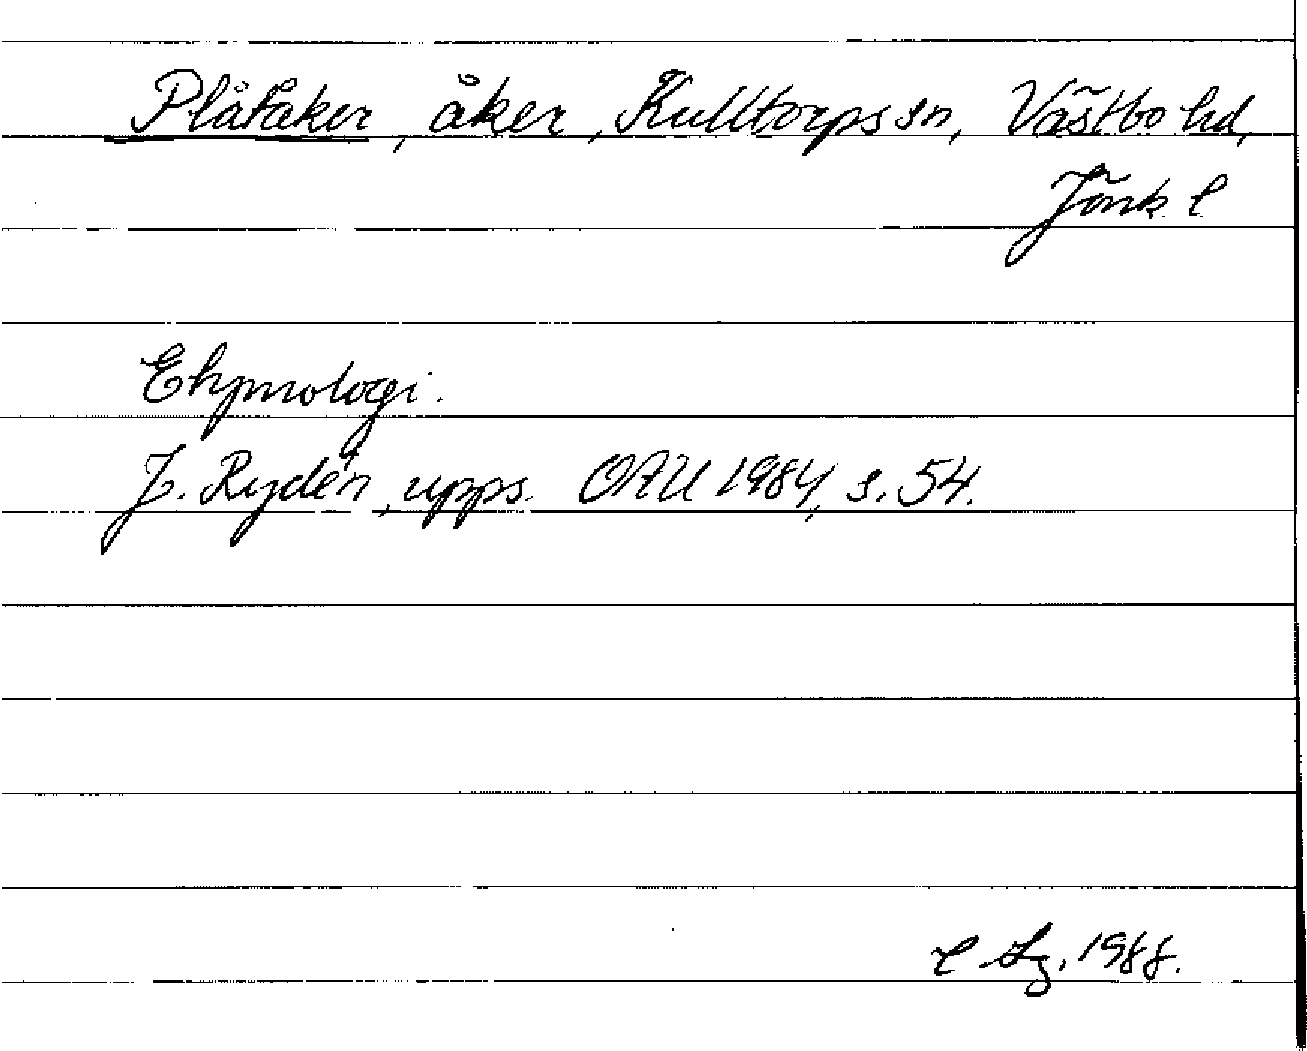 Plåtåker, åker, Kulltorps sn, Västbo hd,
Jönk l
Etymologi.
J. Rydén, upps. OAU 1984, s. 54.
1988.